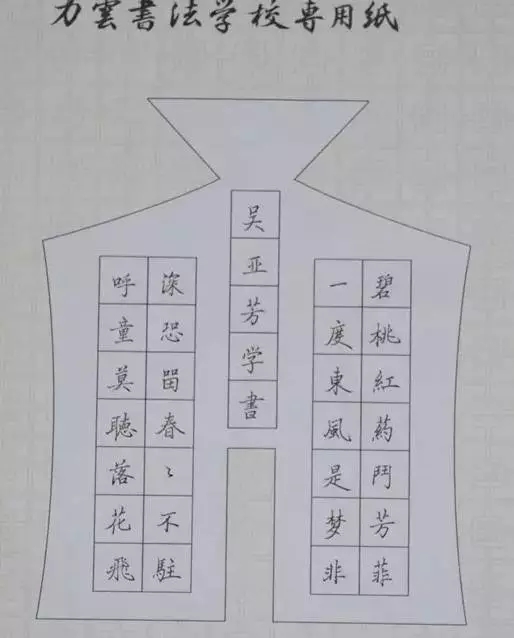 力雲書法学校専用纸
碧桃紅药鬥芳菲
一度東風是梦非
深恐留春〻不駐
呼童莫聽落花飛
吴亚芳学書